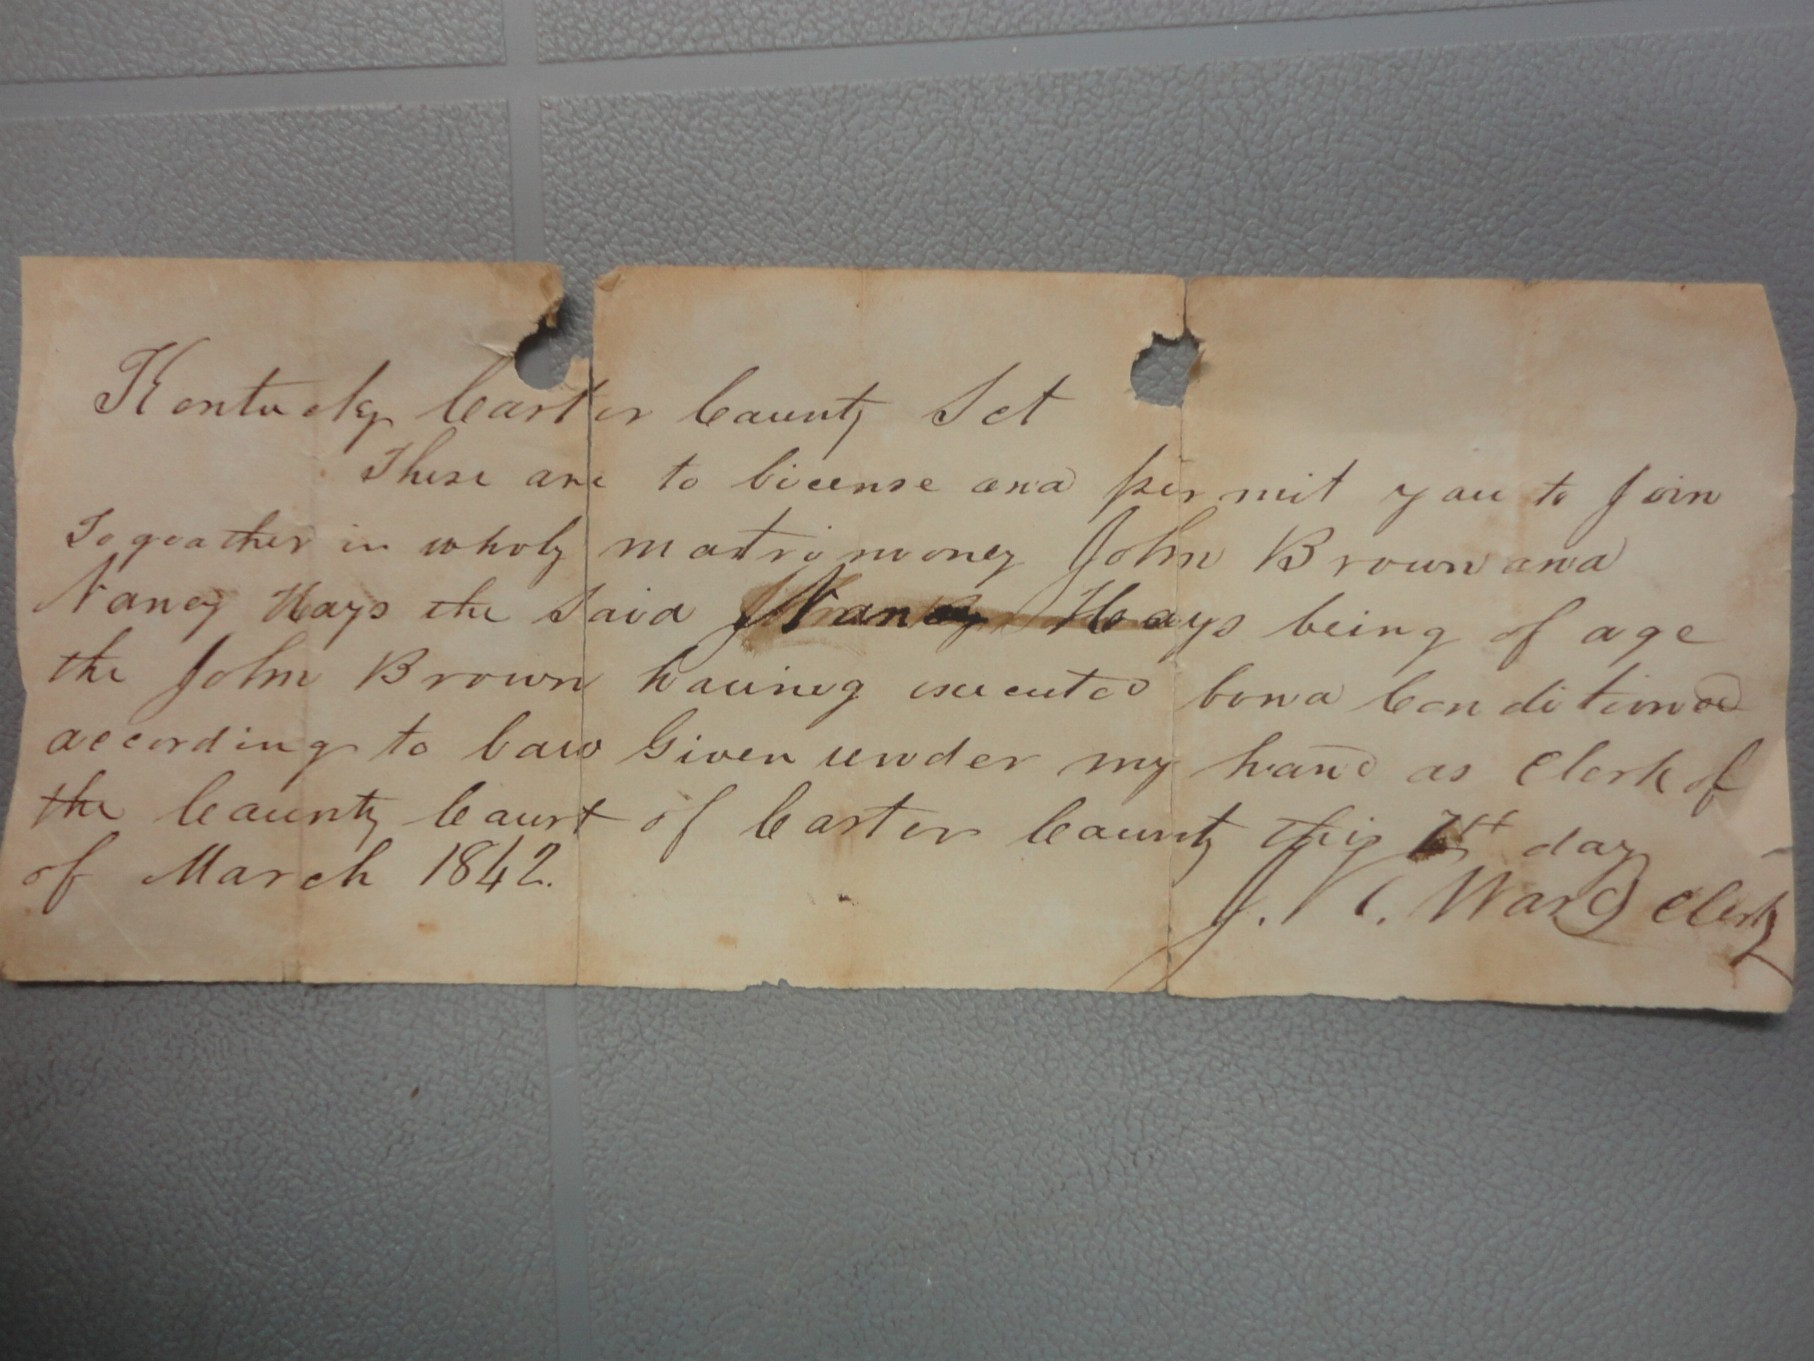 Kentucky Carter County Sct
These are to license and permit you to Join
Togeather in wholy matrimoney John Brown and
Nancy Hays the said Nancy Hays being of age
the John Brown haveing executed bond Conditioned
according to law Given under my hand as Clerk of
the County Court of Carter County this 7th day
of March 1842.
J. N. C. Ward Clerk